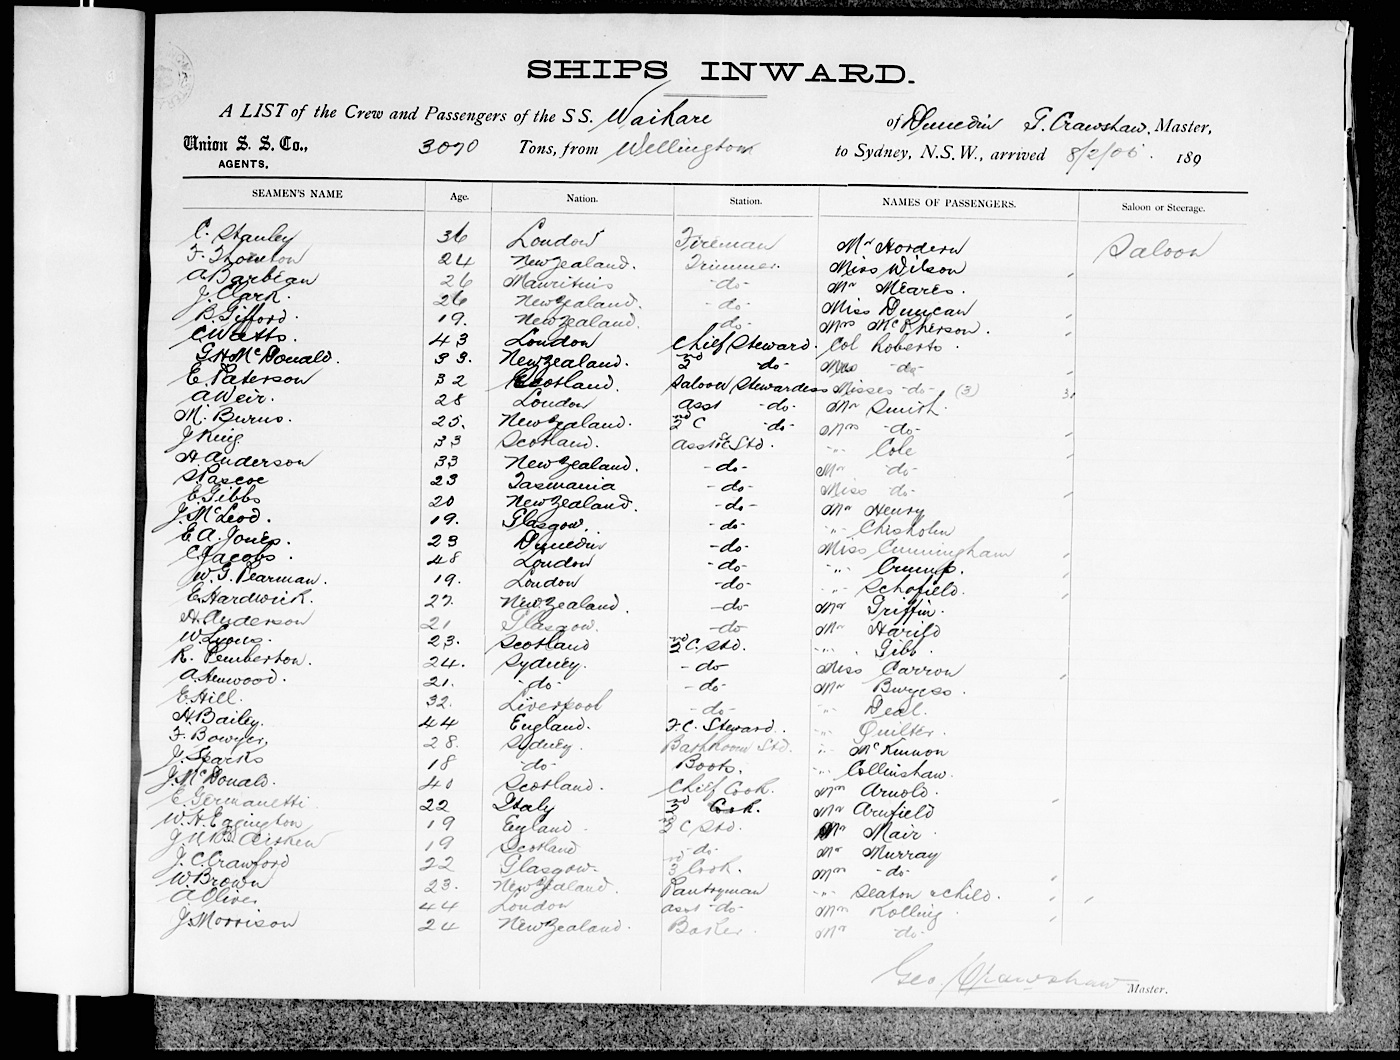 SHIPS INWARD.
A LIST of the Crew and Passengers of the SS. Waihare of Dunedin G. Crawshaw, Master,
Union S. S. Co., 3070 Tons, from Wellington to Sydney, N.S.W., arrived 8/2/06. 189
AGENTS.
SEAMEN'S NAME Age. Nation. Station. NAMES OF PASSENGERS. Saloon or Steerage.
C. Stanley 36 London Fireman Mr Hordern Saloon
F. Thornton 24 New Zealand. Trimmer. Miss Wilson
A Barbean 26 Mauritius -do- Mr Meares.
J. Clark. 26 New Zealand. -do- Miss Duncan
B. Gifford. 19. New Zealand. -do- Mrs McPherson.
C Watts. 43 London Chief Steward. Col Roberts.
G.H. McDonald. 33. New Zealand. 2nd -do- Mrs -do-
E. Paterson 32 Scotland. Saloon Stewardess Misses -do- (3) 3.
A Weir. 28 London Asst -do- Mr Smith.
M. Burns. 25. New Zealand. 2nd C -do- Mrs -do-
J King 33 Scotland. Asst Std. -"- Cole
H Anderson 33 New Zealand. -do- Mr -do-
S Pascoe 23 Tasmania -do- Miss -do-
E. Gibbs 20 New Zealand. -do- Mr Henry
J. McLeod. 19. Glasgow. -do- -"- Chisholm
E A. Jones. 23 Dunedin -do- Miss Cunningham
C. Jacobs. 48 London -do- -"- Crump.
W. G. Pearman. 19. London -do- -"- Schofield.
E. Hardwick. 27. New Zealand. -do- Mr Griffin.
H. Anderson 21 Glasgow. -do- Mr
W Lyons. 23. Scotland 2nd C. Std. -"- Gibb.
R. Pemberton. 24. Sydney. -do- Miss Carron
A. Henwood. 21. -do- -do- Mr Burgess.
E. Hill. 32. Liverpool -do- -"- Deal.
H. Bailey. 44 England. F.C. Steward. -"- Quilter.
F. Bowyer, 28. Sydney. Bathroom Std. -"- McKinnon
J. Sparks 18 -do- Boots. -"- Collinshaw.
J. McDonald. 40 Scotland. Chief Cook. Mrs Arnold.
E. Germanetti 22 Italy 2nd Cook. Mrs Armfield
W. H. Eggington 19 England. 2nd C Std. Mr Mair.
Aitken 19 Scotland -do- Mr Murray
J. C. Crawford 22 Glasgow- 3rd Cook. Mrs -do-
W Brown 23. New Zealand. Pantryman -"- Seaton & child.
A Oliver 44 London asst -do- Mrs Rolling.
J. Morrison 24 New Zealand. Baker. Mr -do-
Geo. Crawshaw Master.